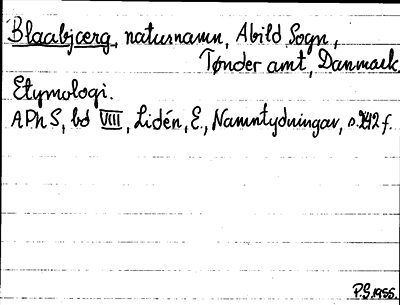 Blaabjcerg, naturnamn, Abild Sogn,
Tønder amt, Danmark.
Etymologi.
APhS, bd VIII, Lidén, E., Namntydningar, s. 242 f.
P.S. 1955.